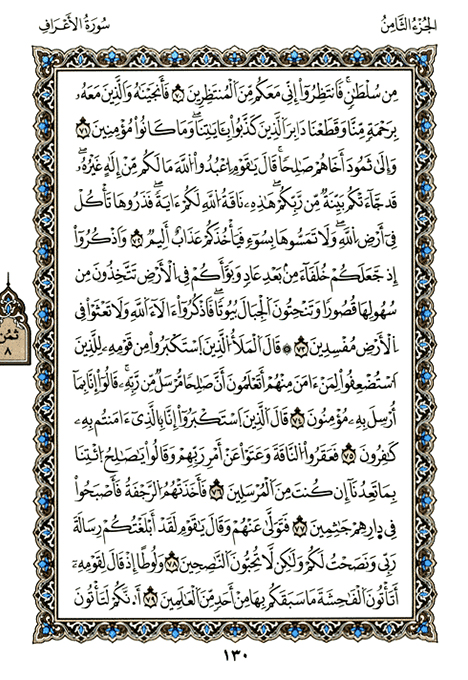 الجُزْءُ الثَّامِنُ
سُورَةُ الأَعْرَافِ
مِن سُلْطَٰنٍ فَانتَظِرُوٓاْ إِنِّے مَعَكُم مِّنَ اَ۬لْمُنتَظِرِينَ ٧٠ فَأَنجَيْنَٰهُ وَالذِينَ مَعَهُۥ
بِرَحْمَةٍ مِّنَّا وَقَطَعْنَا دَابِرَ اَ۬لذِينَ كَذَّبُواْ بِـَٔايَٰتِنَا وَمَا كَانُواْ مُؤْمِنِينَ ٧١
وَإِلَىٰ ثَمُودَ أَخَاهُمْ صَٰلِحاً قَالَ يَٰقَوْمِ اِ۟عْبُدُواْ اُ۬للَّهَ مَا لَكُم مِّنِ اِلَٰهٍ غَيْرُهُۥ
قَدْ جَآءَتْكُم بَيِّنَةٌ مِّن رَّبِّكُمْ هَٰذِهِۦ نَاقَةُ اُ۬للَّهِ لَكُمُۥٓ ءَايَةً فَذَرُوهَا تَاكُلْ
فِےٓ أَرْضِ اِ۬للَّهِ وَلَا تَمَسُّوهَا بِسُوٓءٍ فَيَاخُذَكُمْ عَذَابٌ اَلِيمٌ ٧٢ وَاذْكُرُوٓاْ
إِذْ جَعَلَكُمْ خُلَفَآءَ مِنۢ بَعْدِ عَادٍ وَبَوَّأَكُمْ فِے اِ۬لْأَرْضِ تَتَّخِذُونَ مِن
سُهُولِهَا قُصُوراً وَتَنْحِتُونَ اَ۬لْجِبَالَ بُيُوتاً فَاذْكُرُوٓاْ ءَالَآءَ اَ۬للَّهِ وَلَا تَعْثَوْاْ فِے
اِ۬لْأَرْضِ مُفْسِدِينَ ٧٣ ۞ قَالَ اَ۬لْمَلَأُ اُ۬لذِينَ اَ۪سْتَكْبَرُواْ مِن قَوْمِهِۦ لِلذِينَ
اَ۟سْتُضْعِفُواْ لِمَنَ اٰمَنَ مِنْهُمُۥٓ أَتَعْلَمُونَ أَنَّ صَٰلِحاً مُّرْسَلٌ مِّن رَّبِّهِۦ قَالُوٓاْ إِنَّا بِمَآ
أُرْسِلَ بِهِۦ مُؤْمِنُونَ ٧٤ قَالَ اَ۬لذِينَ اَ۪سْتَكْبَرُوٓاْ إِنَّا بِالذِےٓ ءَامَنتُم بِهِۦ
كَٰفِرُونَ ٧٥ فَعَقَرُواْ اُ۬لنَّاقَةَ وَعَتَوْاْ عَنَ اَمْرِ رَبِّهِمْ وَقَالُواْ يَٰصَٰلِحُ اُ۪يتِنَا
بِمَا تَعِدُنَآ إِن كُنتَ مِنَ اَ۬لْمُرْسَلِينَ ٧٦ فَأَخَذَتْهُمُ اُ۬لرَّجْفَةُ فَأَصْبَحُواْ
فِے دِارِهِمْ جَٰثِمِينَ ٧٧ فَتَوَلَّىٰ عَنْهُمْ وَقَالَ يَٰقَوْمِ لَقَدَ اَبْلَغْتُكُمْ رِسَالَةَ
رَبِّے وَنَصَحْتُ لَكُمْ وَلَٰكِن لَّا تُحِبُّونَ اَ۬لنَّٰصِحِينَ ٧٨ وَلُوطاً اِذْ قَالَ لِقَوْمِهِۦٓ
أَتَاتُونَ اَ۬لْفَٰحِشَةَ مَا سَبَقَكُم بِهَا مِنَ اَحَدٍ مِّنَ اَ۬لْعَٰلَمِينَ ٧٩ إِنَّكُمْ لَتَاتُونَ
ثُمُن
٨
١٣٠